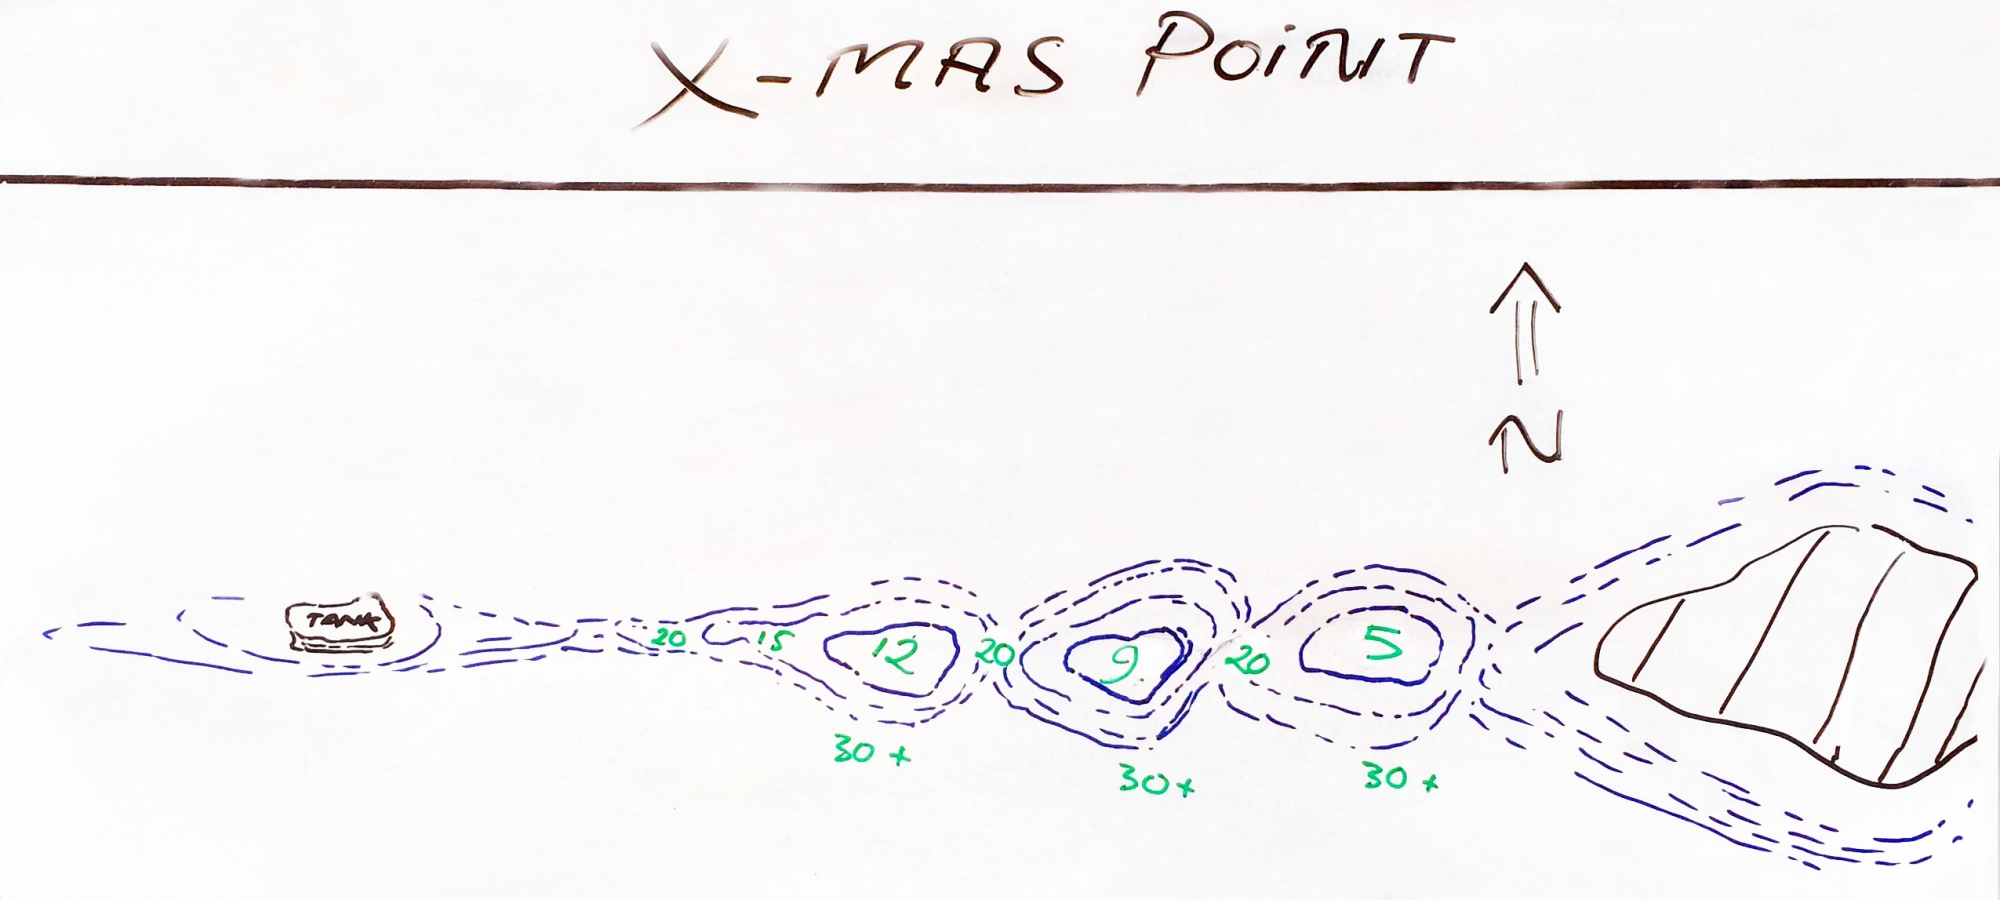 X-MAS POiNT
N
TANK
20 15 12 20 9 20 5
30+ 30+ 30+